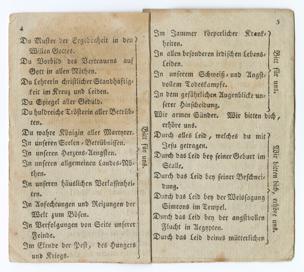 4
Du Muster der Ergebenheit in den
Willen Gottes.
Du Vorbild des Vertrauens auf
Gott in allen Nöthen.
Du Lehrerin christlicher Standhaftig-
keit im Kreuz und Leiden.
Du Spiegel aller Geduld.
Du huldreiche Trösterin aller Betrüb-
ten.
Du wahre Königin aller Martyrer.
In unseren Seelen-Betrübnissen.
In unseren Herzens-Aengsten.
In unseren allgemeinen Landes-Nö-
then.
In unseren häuslichen Verlassenhei-
ten.
In Anfechtungen und Reizungen der
Welt zum Bösen.
In Verfolgungen von Seite unserer
Feinde.
Im Elende der Pest, des Hungers
und Kriegs.
Bitt für uns.
5
Im Jammer körperlicher Krank-
heiten.
In allen besonderen irdischen Lebens-
Leiden.
In unserem Schweiß- und Angst-
vollem Todeskampfe.
In dem gefährlichen Augenblicke un-
serer Hinscheidung.
Bitt für uns.
Wir armen Sünder. Wir bitten dich,
erhöre uns.
Durch alles Leid, welches du mit
Jesu getragen.
Durch das Leid bey seiner Geburt im
Stalle.
Durch das Leid bey seiner Beschnei-
dung.
Durch das Leid bey der Weissagung
Simeons im Tempel.
Durch das Leid bey der angstvollen
Flucht in Aegypten.
Durch das Leid deines mütterlichen
Wir bitten dich, erhöre uns.